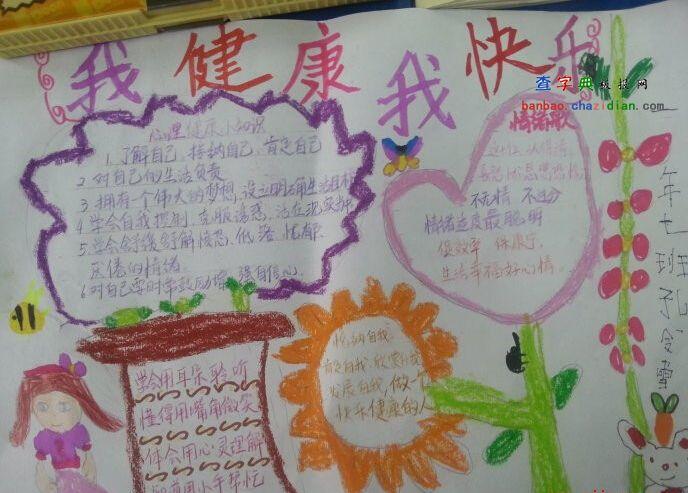 我健康我快乐
查字典板报网
banbao.chazidian.com
心理健康小知识
1.了解自己,接纳自己,肯定自己
2.对自己的生活负责
3.拥有一个伟大的梦想,设立明确生活目标
4.学会自我控制,克服诱惑,活在现实中
5.学会舒缓纾解愤怒,低落,忧郁
厌倦的情绪
6.对自己要时常鼓励,增强自信心
情绪歌
不无情 不过分
情绪适度最聪明
促效率 保康宁
生活幸福好心情。
学会用耳朵聆听
懂得用嘴角微笑
体会用心灵理解
用小手帮忙
悦纳自我
肯定自我,欣赏自我
发展自我,做个
快乐健康的人
一年七班孔令